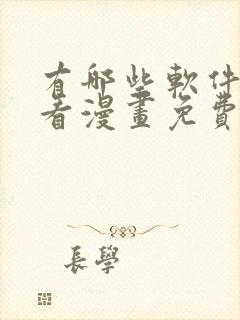 有哪些軟件
看漫畫免費
長學